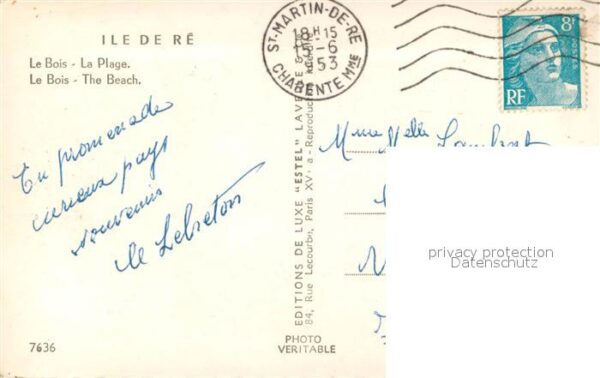 ILE DE RÉ
Le Bois - La Plage.
Le Bois - The Beach.
En promenade
curieux pays
souvenirs
Lebreton
7636
EDITIONS DE LUXE "ESTEL" LAV
84, Rue Lecourbe, Paris XV - Reproduc
PHOTO
VERITABLE
ST-MARTIN-DE-RE
18H15
15-6
53
CHARENTE MME
8F
RF
Mme Melle Lambert
privacy protection
Datenschutz